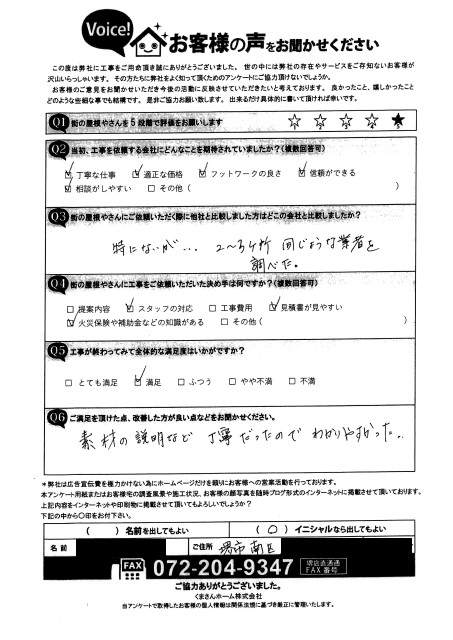 Voice! お客様の声をお聞かせください
この度は弊社に工事をご用命頂き誠にありがとうございました。 世の中には弊社の存在やサービスをご存知ないお客様が
沢山いらっしゃいます。 その方たちに弊社をよく知って頂くためのアンケートにご協力頂けないでしょうか。
お客様のご意見をお聞かせいただき今後の活動に反映させていただきたいと考えております。 良かったこと、嬉しかったこと
どのような些細な事でも結構です。 是非ご協力お願い致します。 出来るだけ具体的に書いて頂ければ幸いです。
Q1 街の屋根やさんを5段階で評価をお願いします ☆ ☆ ☆ ☆ ★
Q2 当初、工事を依頼する会社にどんなことを期待されていましたか？(複数回答可)
☑丁寧な仕事 ☑適正な価格 ☑フットワークの良さ ☑信頼ができる
☑相談がしやすい □その他（ ）
Q3 街の屋根やさんにご依頼いただく際に他社と比較しました方はどこの会社と比較しましたか？
特にないが… 2〜3ヶ所 同じような業者を
調べた。
Q4 街の屋根やさんに工事をご依頼いただいた決め手は何ですか？(複数回答可)
□提案内容 ☑スタッフの対応 □工事費用 ☑見積書が見やすい
☑火災保険や補助金などの知識がある □その他（ ）
Q5 工事が終わってみて全体的な満足度はいかがですか？
□とても満足 ☑満足 □ふつう □やや不満 □不満
Q6 ご満足を頂けた点、改善した方が良い点などをお聞かせください。
素材の説明など 丁寧だったので わかりやすかった。
＊弊社は広告宣伝費を極力かけない為にホームページだけを頼りにお客様への営業活動を行っております。
本アンケート用紙またはお客様宅の調査風景や施工状況、お客様の顔写真を随時ブログ形式のインターネットに掲載させて頂いております。
上記内容をインターネットや印刷物に掲載させて頂いてもよろしいでしょうか？
下記の中から〇印をお付下さい。
（ ）名前を出してもよい （ ○ ）イニシャルなら出してもよい
名前 ご住所 堺市南区
FAX 072-204-9347 堺店直通通
FAX番号
ご協力ありがとうございました。
くまさんホーム株式会社
当アンケートで取得したお客様の個人情報は関係法規に基づき厳正に管理いたします。